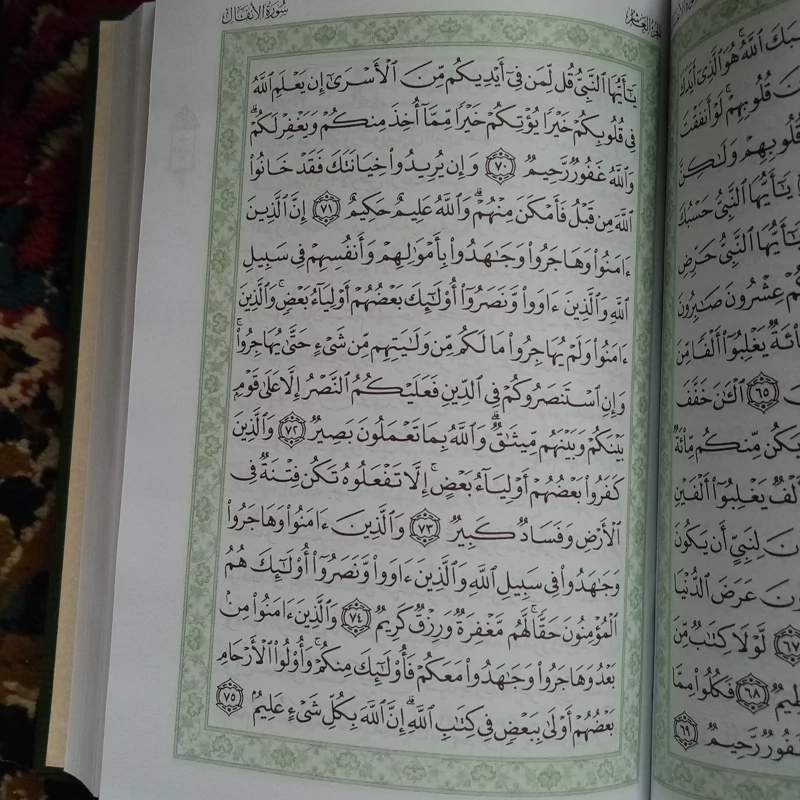 سُورَةُ الأَنفَالِ
يَٰٓأَيُّهَا ٱلنَّبِيُّ قُل لِّمَن فِىٓ أَيْدِيكُم مِّنَ ٱلْأَسْرَىٰٓ إِن يَعْلَمِ ٱللَّهُ
فِى قُلُوبِكُمْ خَيْرًا يُؤْتِكُمْ خَيْرًا مِّمَّآ أُخِذَ مِنكُمْ وَيَغْفِرْ لَكُمْۗ
وَٱللَّهُ غَفُورٌ رَّحِيمٌ ٧٠ وَإِن يُرِيدُوا۟ خِيَانَتَكَ فَقَدْ خَانُوا۟
ٱللَّهَ مِن قَبْلُ فَأَمْكَنَ مِنْهُمْۗ وَٱللَّهُ عَلِيمٌ حَكِيمٌ ٧١ إِنَّ ٱلَّذِينَ
ءَامَنُوا۟ وَهَاجَرُوا۟ وَجَٰهَدُوا۟ بِأَمْوَٰلِهِمْ وَأَنفُسِهِمْ فِى سَبِيلِ
ٱللَّهِ وَٱلَّذِينَ ءَاوَوا۟ وَّنَصَرُوٓا۟ أُو۟لَٰٓئِكَ بَعْضُهُمْ أَوْلِيَآءُ بَعْضٍۚ وَٱلَّذِينَ
ءَامَنُوا۟ وَلَمْ يُهَاجِرُوا۟ مَا لَكُم مِّن وَلَٰيَتِهِم مِّن شَىْءٍ حَتَّىٰ يُهَاجِرُوا۟ۚ
وَإِنِ ٱسْتَنصَرُوكُمْ فِى ٱلدِّينِ فَعَلَيْكُمُ ٱلنَّصْرُ إِلَّا عَلَىٰ قَوْمٍۭ
بَيْنَكُمْ وَبَيْنَهُم مِّيثَٰقٌۗ وَٱللَّهُ بِمَا تَعْمَلُونَ بَصِيرٌ ٧٢ وَٱلَّذِينَ
كَفَرُوا۟ بَعْضُهُمْ أَوْلِيَآءُ بَعْضٍۚ إِلَّا تَفْعَلُوهُ تَكُن فِتْنَةٌ فِى
ٱلْأَرْضِ وَفَسَادٌ كَبِيرٌ ٧٣ وَٱلَّذِينَ ءَامَنُوا۟ وَهَاجَرُوا۟
وَجَٰهَدُوا۟ فِى سَبِيلِ ٱللَّهِ وَٱلَّذِينَ ءَاوَوا۟ وَّنَصَرُوٓا۟ أُو۟لَٰٓئِكَ هُمُ
ٱلْمُؤْمِنُونَ حَقًّاۚ لَّهُم مَّغْفِرَةٌ وَرِزْقٌ كَرِيمٌ ٧٤ وَٱلَّذِينَ ءَامَنُوا۟ مِنۢ
بَعْدُ وَهَاجَرُوا۟ وَجَٰهَدُوا۟ مَعَكُمْ فَأُو۟لَٰٓئِكَ مِنكُمْۚ وَأُو۟لُوا۟ ٱلْأَرْحَامِ
بَعْضُهُمْ أَوْلَىٰ بِبَعْضٍ فِى كِتَٰبِ ٱللَّهِۗ إِنَّ ٱللَّهَ بِكُلِّ شَىْءٍ عَلِيمٌۢ ٧٥
ٱللَّهُۚ هُوَ ٱلَّذِىٓ أَيَّدَكَ
قُلُوبِهِمْۚ لَوْ أَنفَقْتَ
قُلُوبِهِمْ وَلَٰكِنَّ
يَٰٓأَيُّهَا ٱلنَّبِيُّ حَسْبُكَ
يَٰٓأَيُّهَا ٱلنَّبِيُّ حَرِّضِ
عِشْرُونَ صَٰبِرُونَ
يَغْلِبُوٓا۟ أَلْفًا مِّنَ
٦٥ ٱلْـَٰٔنَ خَفَّفَ
يَكُن مِّنكُم مِّا۟ئَةٌ
يَغْلِبُوٓا۟ أَلْفَيْنِ
لِنَبِىٍّ أَن يَكُونَ
عَرَضَ ٱلدُّنْيَا
٦٧ لَّوْلَا كِتَٰبٌ مِّنَ
٦٨ فَكُلُوا۟ مِمَّا
غَفُورٌ رَّحِيمٌ ٦٩